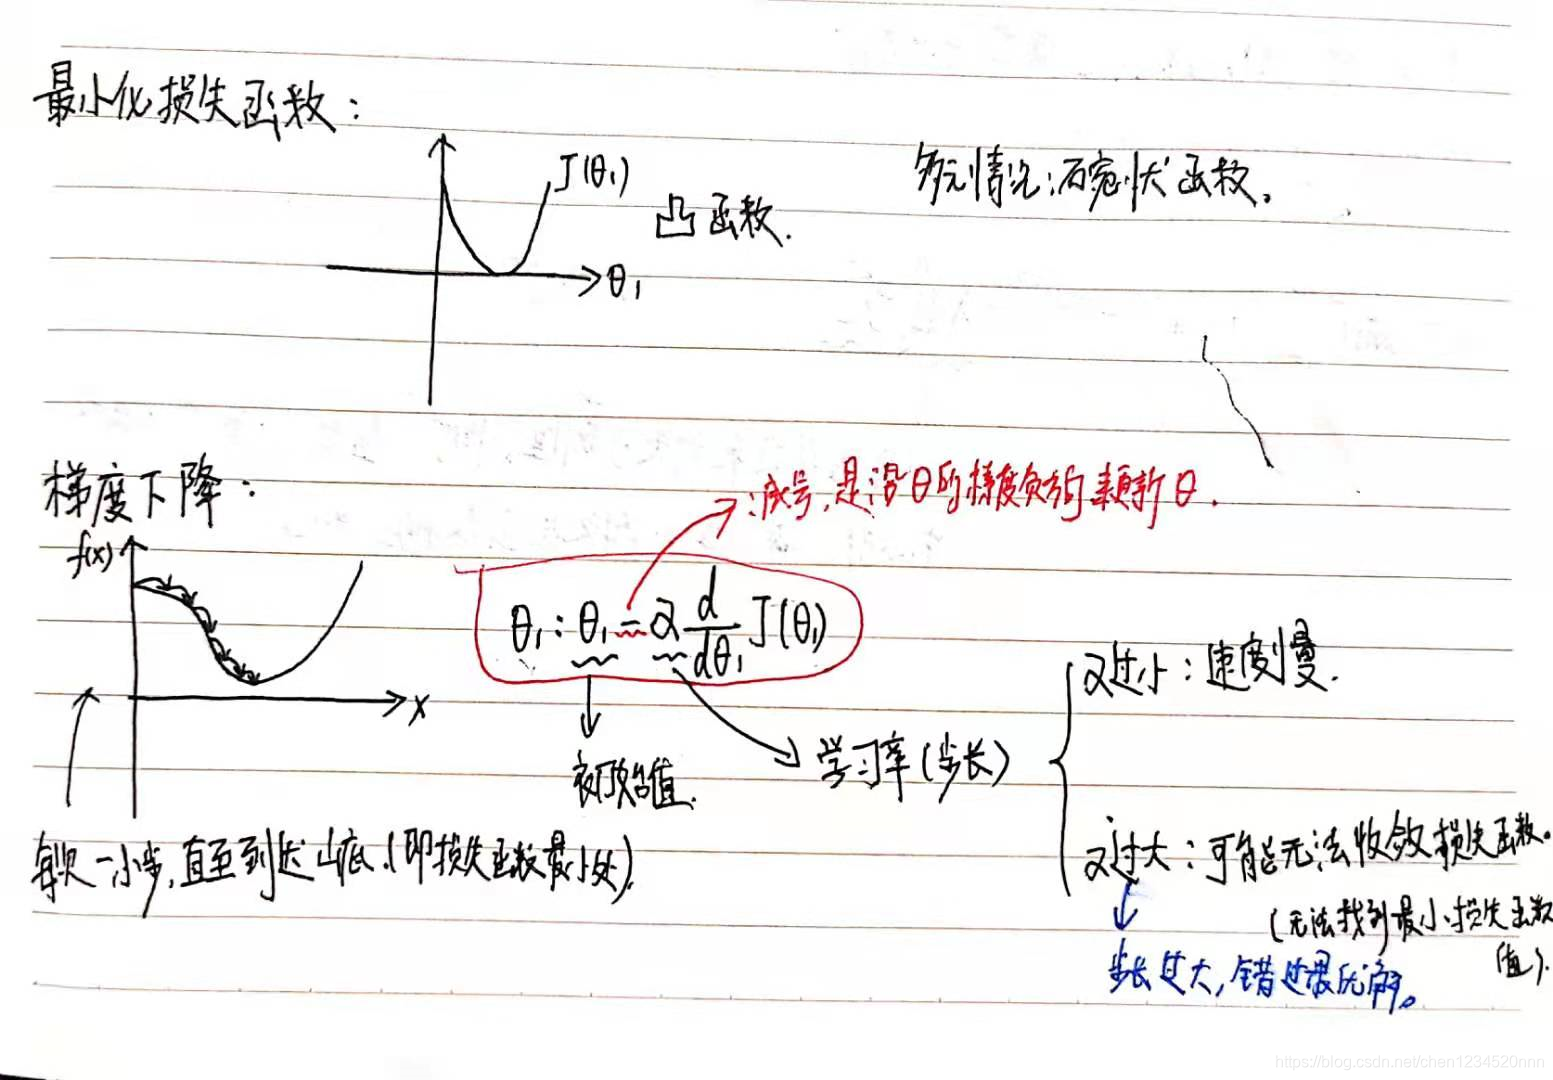 最小化损失函数：
J(θ₁)
凸函数.
θ₁
多元情况：碗状函数。
梯度下降：
：减号，是沿θ的梯度负方向来更新θ.
f(x)
x
θ₁ : θ₁ - α d/dθ₁ J(θ₁)
初始值.
学习率(步长)
α过小：速度慢.
α过大：可能无法收敛损失函数。
(无法找到最小损失函数
值).
步长过大，错过最优解。
每次一小步，直至到达山底.(即损失函数最小处).
https://blog.csdn.net/chen1234520nnn